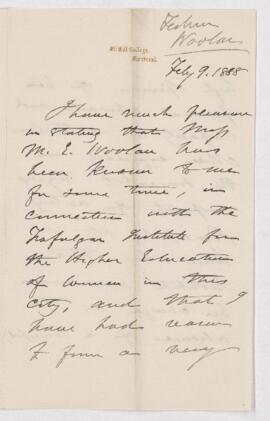 McGill College,
Montreal.
Woolan
Feby 9. 1888
I have much pleasure
in stating that Miss
M. E. Woolan has
been known to me
for some time, in
connection with the
Trafalgar Institute for
the Higher Education
of Women in this
city, and that I
have had reason
to form a very